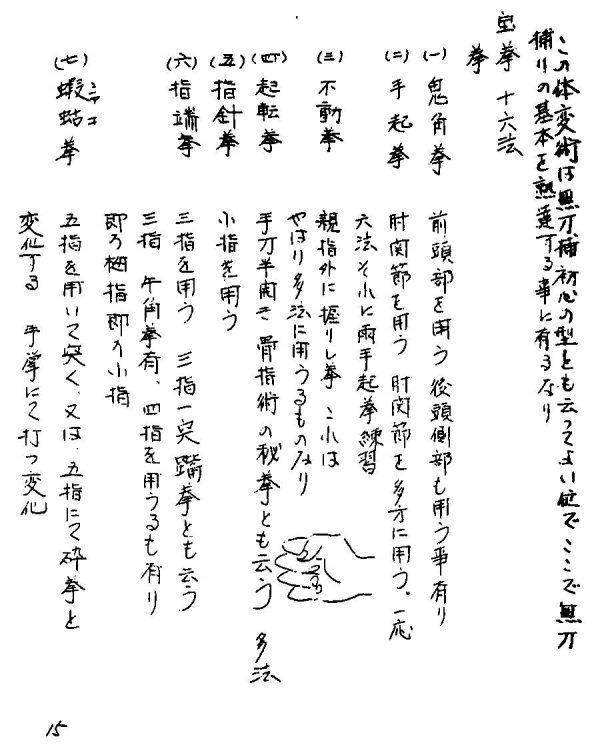 この体変術は無刀捕初心の型とも云ってよい位でここで無刀
捕りの基本を熟達する事に有るなり
宝拳 十六法
拳
(一) 鬼角拳 前頭部を用う 後頭側部も用う事有り
(二) 手起拳 肘関節を用う 肘関節を多方に用う、一応
六法それに両手起拳練習
(三) 不動拳 親指外に握りし拳 これは
やはり多法に用うるものなり
(四) 起転拳 手刀半開き 骨指術の秘拳とも云う 多法
(五) 指針拳 小指を用う
(六) 指端拳 三指を用う 三指一突 蹴拳とも云う
三指 牛角拳有、四指を用うるも有り
即ち拇指即ち小指
(七) 蝦蛄拳 シャコ 五指を用いて突く、又は、五指にて砕拳と
変化する 手掌にて打つ変化
15